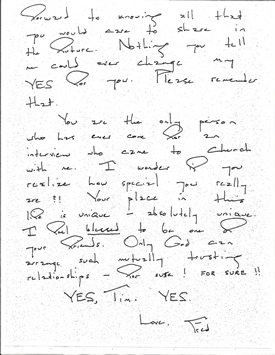 forward to knowing all that
you would care to share in
the future. Nothing you tell
me could ever change my
YES for you. Please remember
that.
You are the only person
who has ever come for an
interview who came to church
with me. I wonder if you
realize how special you really
are !! Your place in this
life is unique - absolutely unique.
I feel blessed to be one of
your friends. Only God can
arrange such mutually trusting
relationships - for sure ! FOR SURE !!
YES, Tim. YES.
Love, Fred